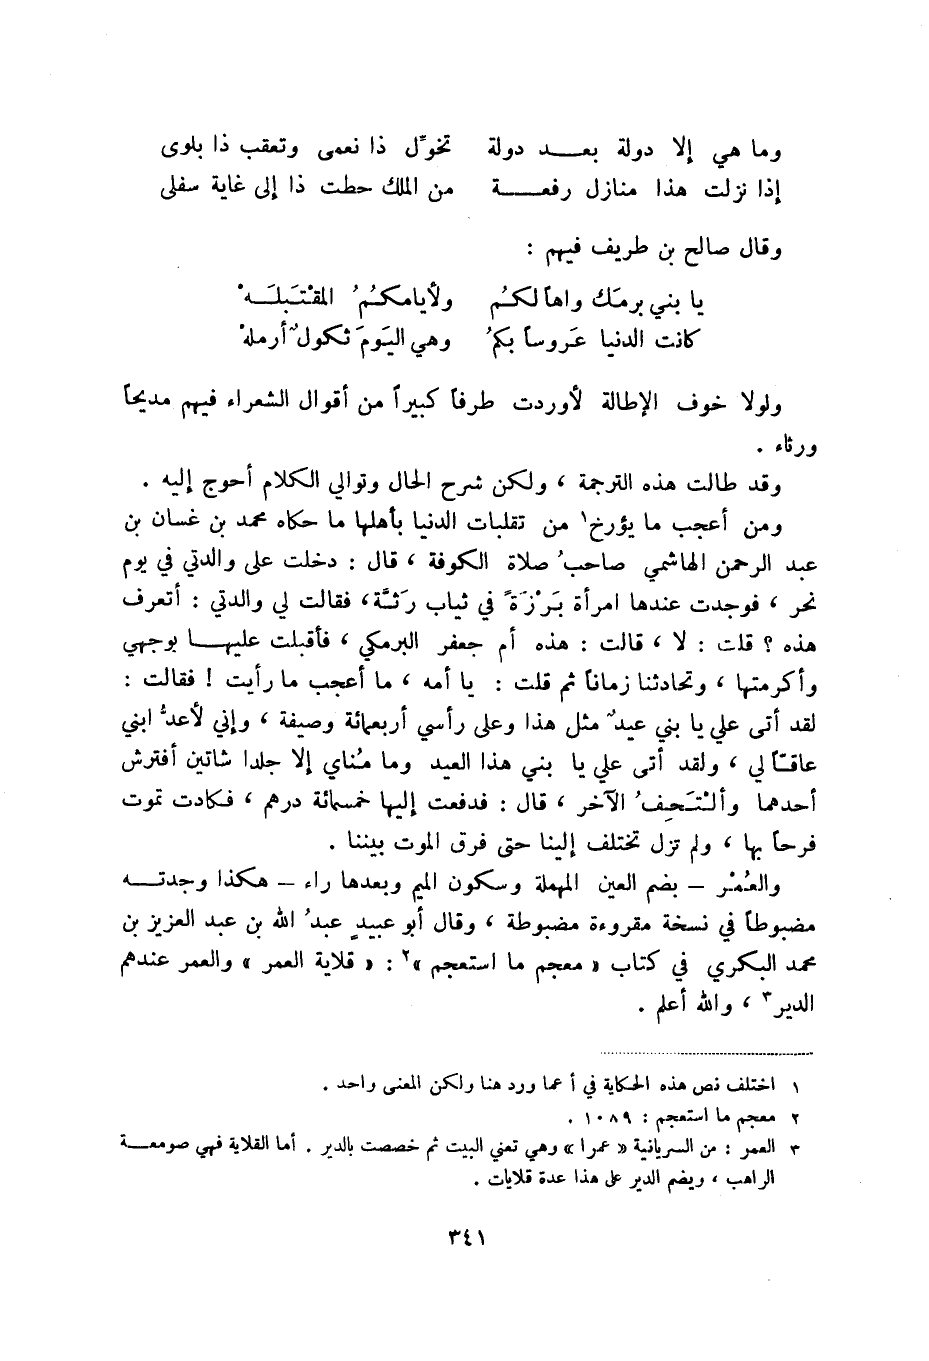 وما هي إلا دولة بعـــد دولة    تخوّل ذا نعمى وتعقب ذا بلوى
إذا نزلت هذا منازل رفعـــة    من الملك حطت ذا إلى غاية سفلى
وقال صالح بن طريف فيهم :
يا بني برمَك واهاً لكُم    ولأيامكُمُ المقْتَبلَهْ
كانت الدنيا عَروساً بكمُ    وهي اليَومَ ثَكولٌ أرملهْ
ولولا خوف الإطالة لأوردت طرفاً كبيراً من أقوال الشعراء فيهم مديحاً
ورثاء .
وقد طالت هذه الترجمة ، ولكن شرح الحال وتوالي الكلام أحوج إليه .
ومن أعجب ما يؤرخ١ من تقلبات الدنيا بأهلها ما حكاه محمد بن غسان بن
عبد الرحمن الهاشمي صاحبُ صلاة الكوفة ، قال : دخلت على والدتي في يوم
نحر ، فوجدت عندها امرأة بَرْزَةً في ثياب رَثَّة، فقالت لي والدتي : أتعرف
هذه ؟ قلت : لا ، قالت : هذه أم جعفر البرمكي ، فأقبلت عليهــا بوجهي
وأكرمتها ، وتحادثنا زماناً ثم قلت : يا أمه ، ما أعجب ما رأيت ! فقالت :
لقد أتى علي يا بني عيدٌ مثل هذا وعلى رأسي أربعمائة وصيفة ، وإني لأعدُّ ابني
عاقّاً لي ، ولقد أتى علي يا بني هذا العيد وما مُناي إلا جلدا شاتين أفترش
أحدهما وألْتَحِفُ الآخر ، قال : فدفعت إليها خمسمائة درهم ، فكادت تموت
فرحاً بها ، ولم تزل تختلف إلينا حتى فرق الموت بيننا .
والعُمْر – بضم العين المهملة وسكون الميم وبعدها راء – هكذا وجدتــه
مضبوطاً في نسخة مقروءة مضبوطة ، وقال أبو عبيدٍ عبدُ الله بن عبد العزيز بن
محمد البكري في كتاب « معجم ما استعجم »٢ : « قلاية العمر » والعمر عندهم
الدير٣ ، والله أعلم .
١ اختلف نص هذه الحكاية في أ عما ورد هنا ولكن المعنى واحد .
٢ معجم ما استعجم : ١٠٨٩ .
٣ العمر : من السريانية « عمرا » وهي تعني البيت ثم خصصت بالدير . أما القلاية فهي صومعــة
الراهب ، ويضم الدير على هذا عدة قلايات .
٣٤١